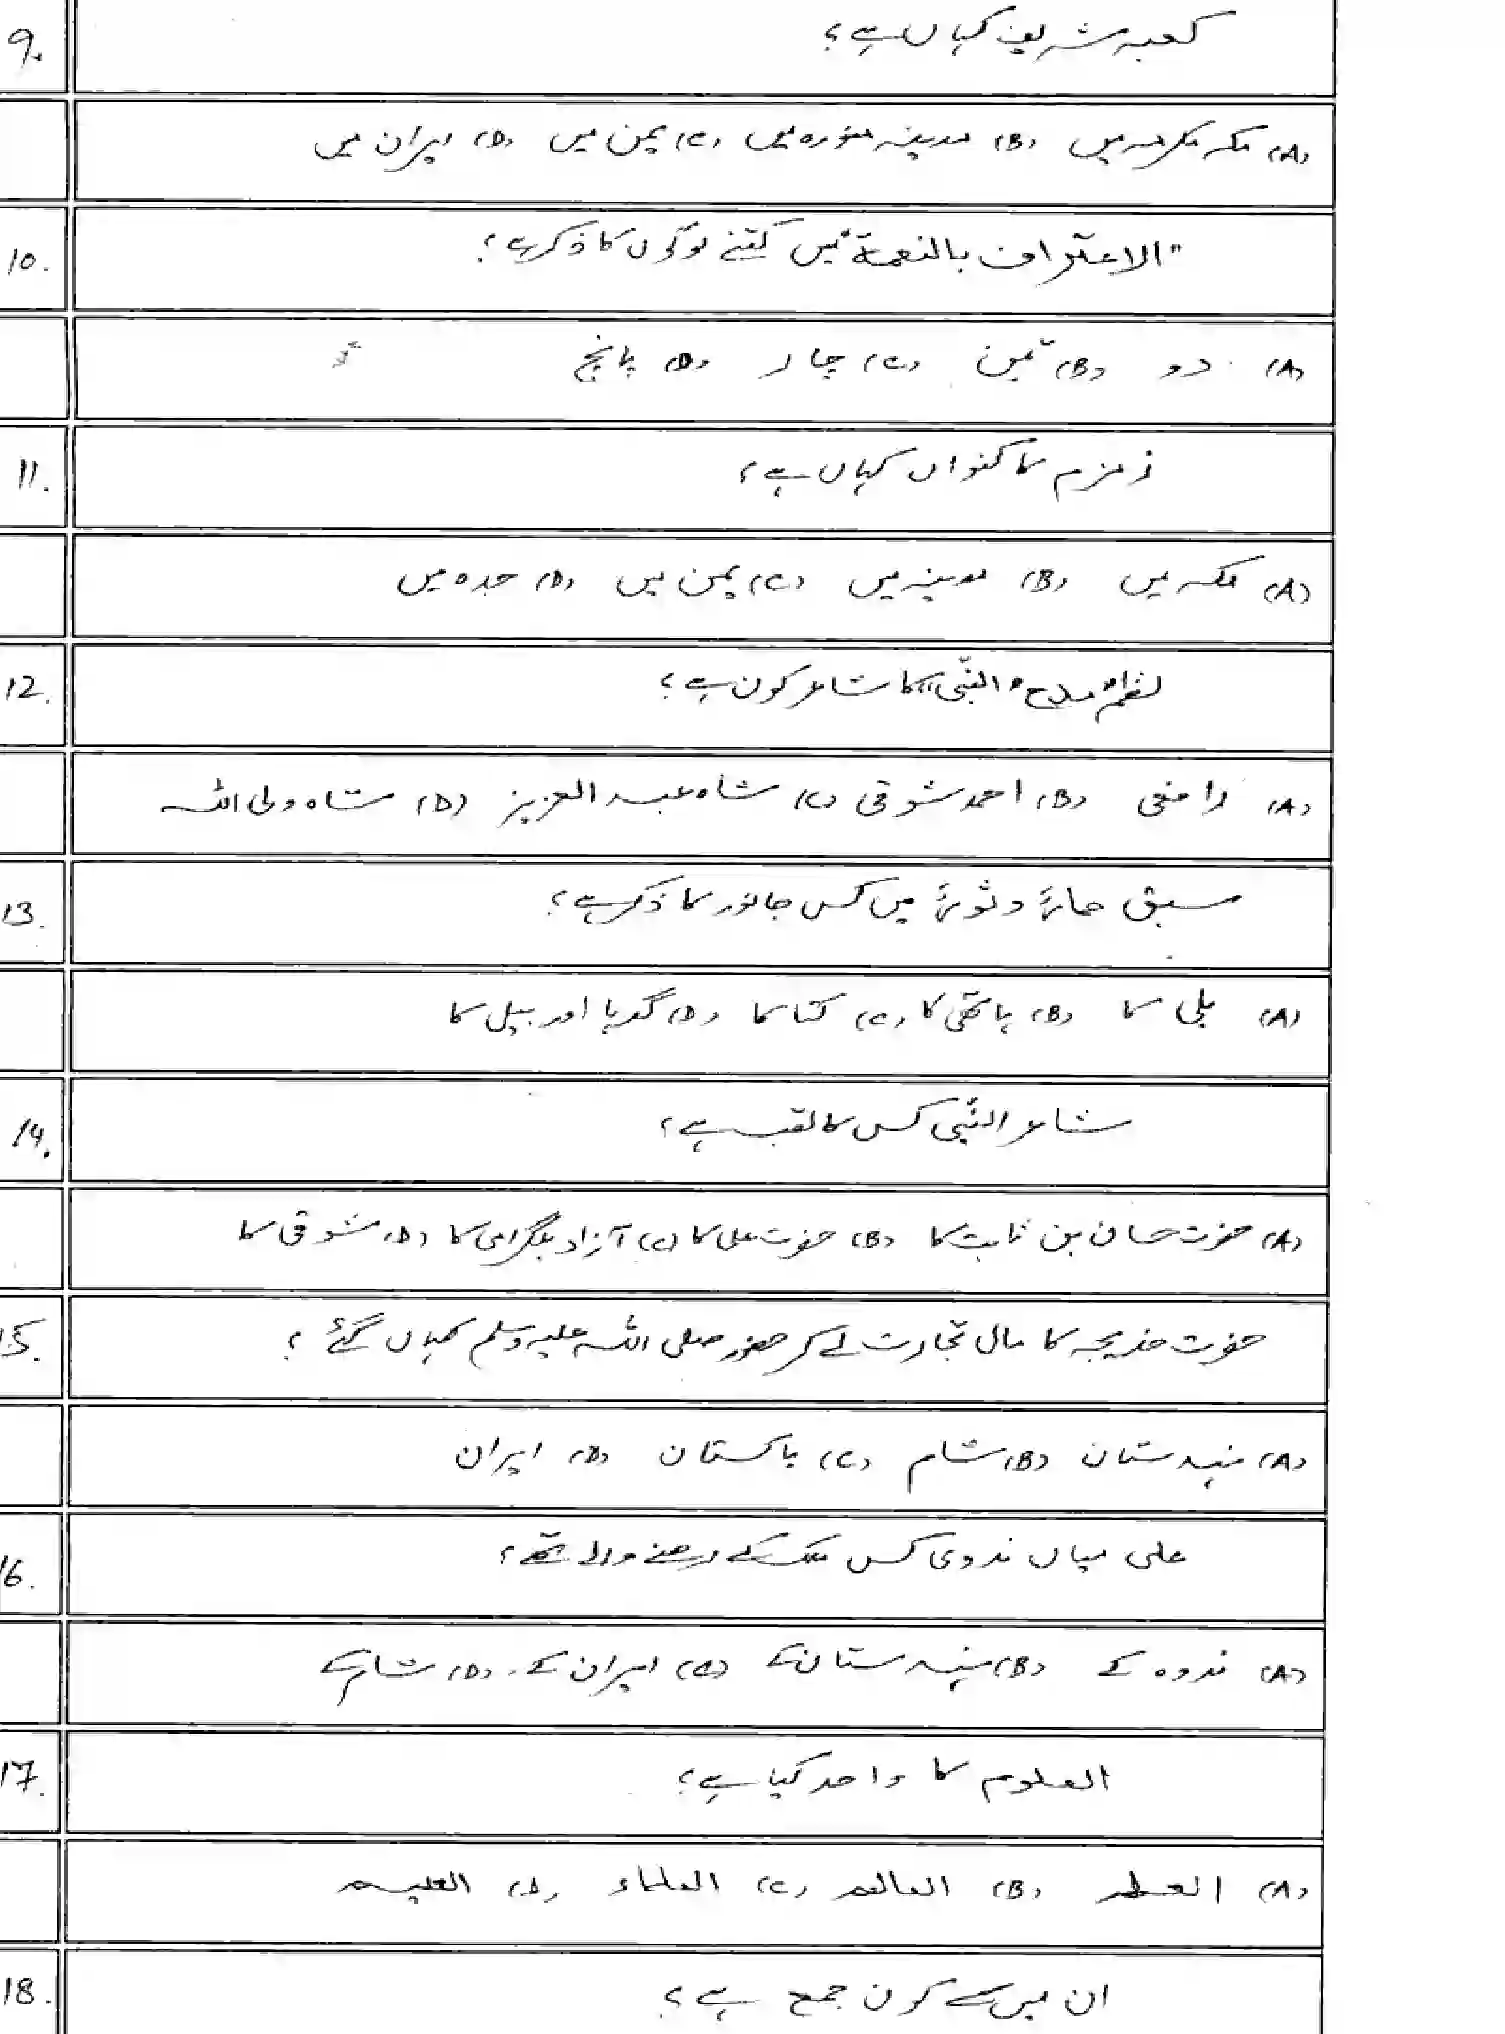 9. کعبہ شریف کہاں ہے؟
(A) مکہ مکرمہ میں (B) مدینہ منورہ میں (C) یمن میں (D) ایران میں
10. "الاعتراف بالنعمۃ" میں کتنے لوگوں کا ذکر ہے؟
(A) دو (B) تین (C) چار (D) پانچ
11. زمزم کا کنواں کہاں ہے؟
(A) مکہ میں (B) مدینہ میں (C) یمن میں (D) جدہ میں
12. نظم "مدح النبیؐ" کا شاعر کون ہے؟
(A) رافعی (B) احمد شوقی (C) شاہ عبد العزیز (D) شاہ ولی اللہ
13. سبق حمارٌ و ثورٌ میں کس جانور کا ذکر ہے؟
(A) بلی کا (B) ہاتھی کا (C) کتا کا (D) گدہا اور بیل کا
14. شاعر النبیؐ کس کا لقب ہے؟
(A) حضرت حسان بن ثابت کا (B) حضرت علی کا (C) آزاد بلگرامی کا (D) شوقی کا
15. حضرت خدیجہ کا مال تجارت لے کر حضور صلی اللہ علیہ وسلم کہاں گئے؟
(A) ہندستان (B) شام (C) پاکستان (D) ایران
16. علی میاں ندوی کس ملک کے رہنے والے تھے؟
(A) ندوہ کے (B) ہندستان کے (C) ایران کے (D) شام کے
17. العلوم کا واحد کیا ہے؟
(A) العلم (B) العالم (C) العلماء (D) العلیم
18. ان میں سے کون جمع ہے؟